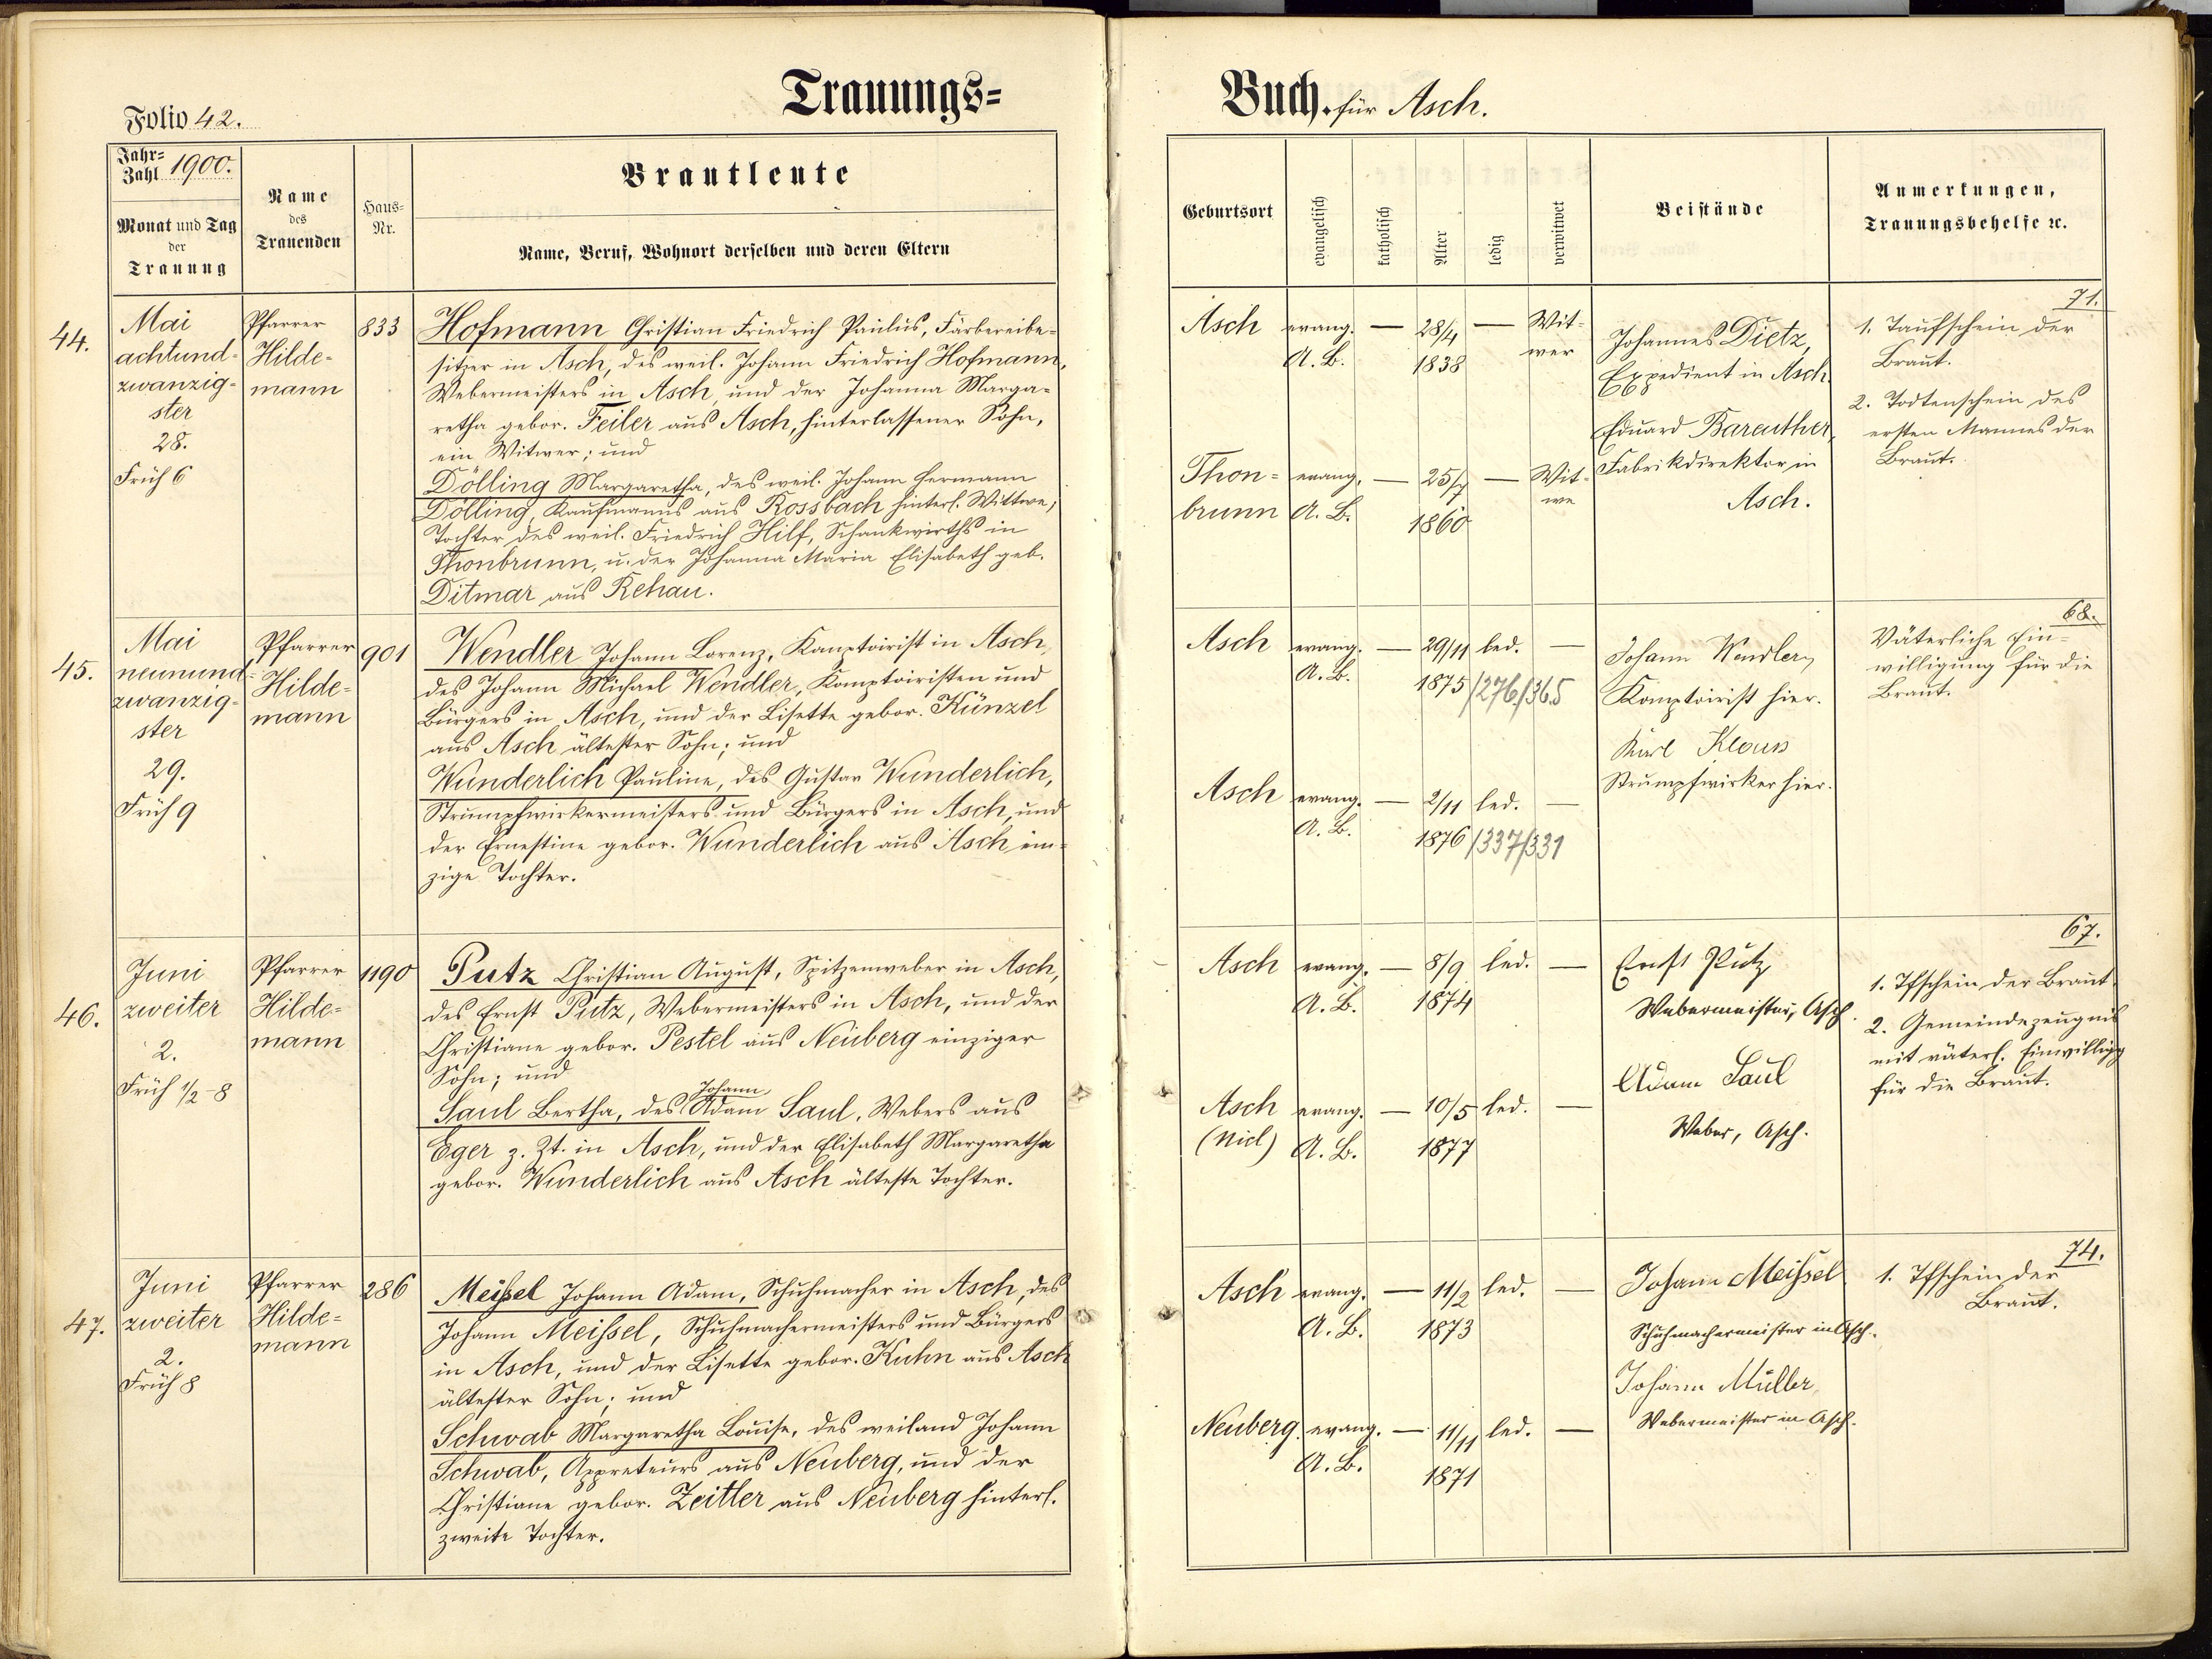 Trauungs=
Folio 42.
Jahr=
Zahl 1900.
Monat und Tag
der
Trauung
Name
des
Trauenden
Haus=
Nr.
Brautleute
Name, Beruf, Wohnort derselben und deren Eltern
44.
Mai
achtund-
zwanzig-
ster
28.
Früh 6
Pfarrer
Hilde-
mann
833
Hofmann Christian Friedrich Paulus, Färbereibe-
sitzer in Asch, des weil. Johann Friedrich Hofmann,
Webermeisters in Asch, und der Johanna Marga-
retha gebor. Feiler aus Asch, hinterlassener Sohn,
ein Witwer; und
Dölling Margaretha, des weil. Johann Hermann
Dölling, Kaufmanns aus Rossbach hinterl. Wittwe,
Tochter des weil. Friedrich Hilf, Schankwirths in
Thonbrunn, u. der Johanna Maria Elisabeth geb.
Ditmar aus Rehau.
45.
Mai
neunund-
zwanzig-
ster
29.
Früh 9
Pfarrer
Hilde-
mann
901
Wendler Johann Lorenz, Komptoirist in Asch,
des Johann Michael Wendler, Komptoiristen und
Bürgers in Asch, und der Lisette gebor. Künzel
aus Asch ältester Sohn; und
Wunderlich Pauline, des Gustav Wunderlich,
Strumpfwirkermeisters und Bürgers in Asch, und
der Ernestine gebor. Wunderlich aus Asch ein-
zige Tochter.
46.
Juni
zweiter
2.
Früh 1/2-8
Pfarrer
Hilde=
mann
1190
Putz Christian August, Spitzenweber in Asch,
des Ernst Putz, Webermeisters in Asch, und der
Christiane gebor. Pestel aus Neuberg einziger
Sohn; und
Johann
Saul Bertha, des Adam Saul, Webers aus
Eger z. Zt. in Asch, und der Elisabeth Margaretha
gebor. Wunderlich aus Asch älteste Tochter.
47.
Juni
zweiter
2.
Früh 8
Pfarrer
Hilde=
mann
286
Meißel Johann Adam, Schuhmacher in Asch, des
Johann Meißel, Schuhmachermeisters und Bürgers
in Asch, und der Lisette gebor. Kuhn aus Asch
ältester Sohn; und
Schwab Margaretha Louise, des weiland Johann
Schwab, Appreteurs aus Neuberg, und der
Christiane gebor. Zeitler aus Neuberg hinterl.
zweite Tochter.
Buch für Asch.
Geburtsort
evangelisch
katholisch
Alter
ledig
verwitwet
Beistände
Anmerkungen,
Trauungsbehelfe ꝛc.
Asch evang. — 28/4 — Wit-
A. B. 1838 wer
Thon= evang. — 25/7 — Wit-
brunn A. B. 1860 we
Johannes Dietz,
Expedient in Asch.
Eduard Bareuther,
Fabrikdirektor in
Asch.
71.
1. Taufschein der
Braut.
2. Todtenschein des
ersten Mannes der
Braut.
Asch evang. — 29/11 led. —
A. B. 1875 /276/365
Asch evang. — 2/11 led. —
A. B. 1876 /337/331
Johann Wendler,
Komptoirist hier.
Karl Klaus
Strumpfwirker hier.
68.
Väterliche Ein-
willigung für die
Braut.
Asch evang. — 8/9 led. —
A. B. 1874
Asch evang. — 10/5 led. —
(Nied) A. B. 1877
Ernst Putz
Webermeister, Asch.
Adam Saul
Weber, Asch.
67.
1. Tfschein der Braut
2. Gemeindezeugnis
mit väterl. Einwilligg
für die Braut.
Asch evang. — 11/2 led. —
A. B. 1873
Neuberg evang. — 11/11 led. —
A. B. 1871
Johann Meißel
Schuhmachermeister in Asch.
Johann Müller,
Webermeister in Asch.
74.
1. Tfschein der
Braut.